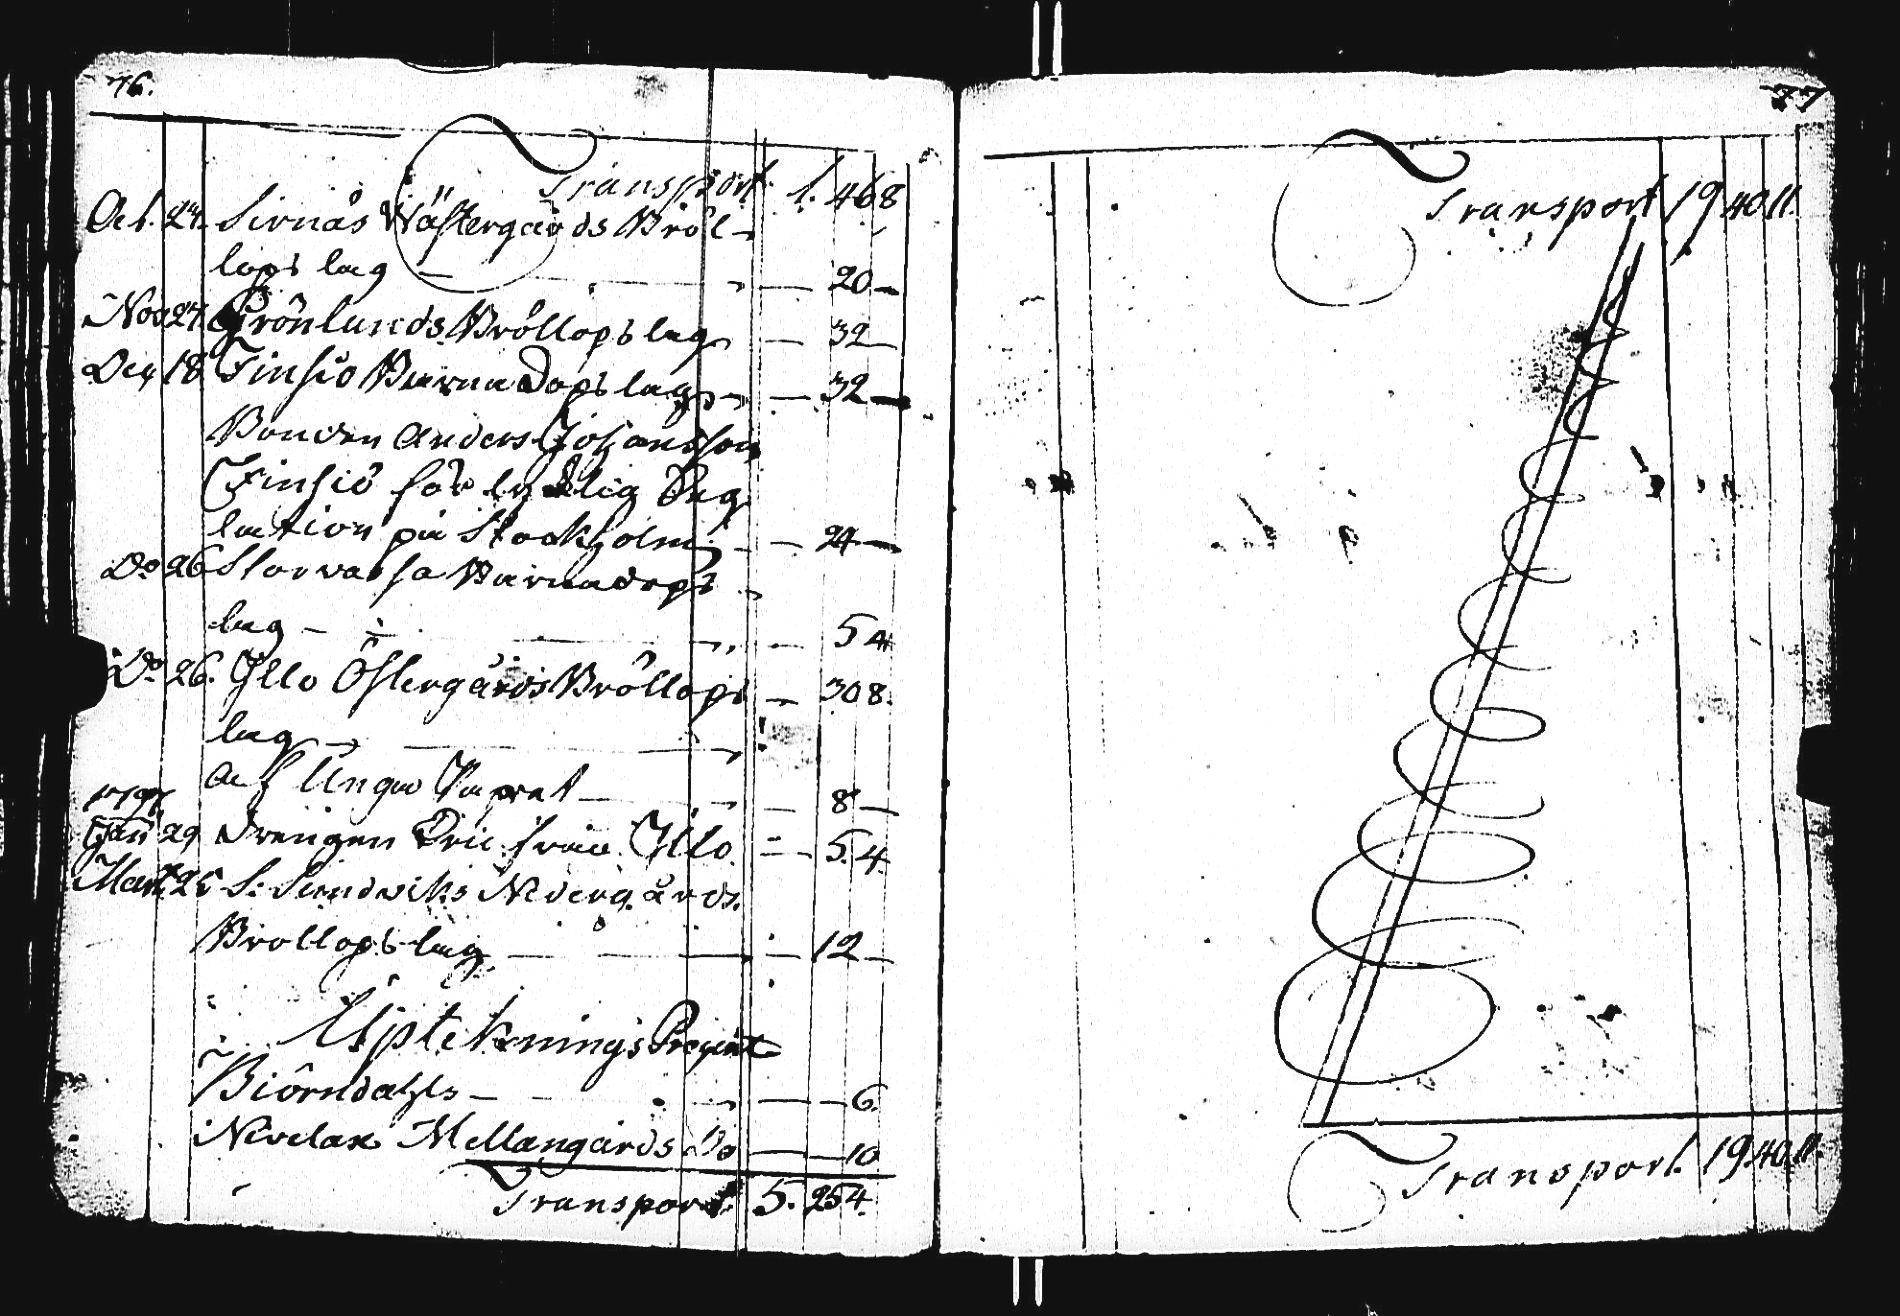 76.
Transport 1. 46 8
Oct. 24. Sirnäs Wästergårds Bröl-
lops lag — 20 —
Nov 24. Grönlunds Bröllops lag — 32 —
Dec 18 Finsiö Barna Dops lag — 32 —
Bonden Anders Johansson
Finsiö för
lation på Stockholm — 24 —
Do 26 Barnadops
lag — 5 4
Do 26. Yllo Östergårds Bröllops — 30 8.
lag —
af Unga Paret — 8 —
1797
Jan 29 Drengen Eric från Yllo. — 5. 4.
Mart. 25 S: Sundwiks Nedergårds.
Bröllops lag — 12 —
Upteknings
Biörndahls — 6.
Nevelax Mellangårds Do — 10
Transport 5. 25 4.
77
Transport 19 40 11.
Transport. 19 40 11.